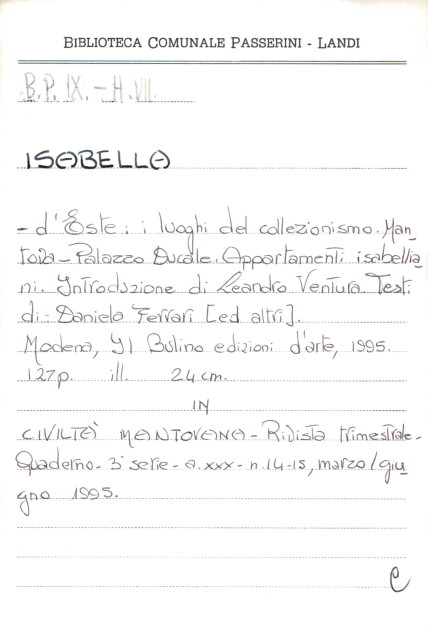 BIBLIOTECA COMUNALE PASSERINI - LANDI
B.P. IX. - H. VII.
ISABELLA
- d'Este : i luoghi del collezionismo. Man
tova - Palazzo Ducale. Appartamenti isabellia
ni. Introduzione di Leandro Ventura Testi
di : Daniela Ferrari [ed altri].
Modena, Il Bulino edizioni d'arte, 1995.
127 p. ill. 24 cm.
IN
CIVILTÀ MANTOVANA - Rivista trimestrale -
Quaderno - 3ª serie - a. xxx - n. 14-15, marzo / giu
gno 1995.
C